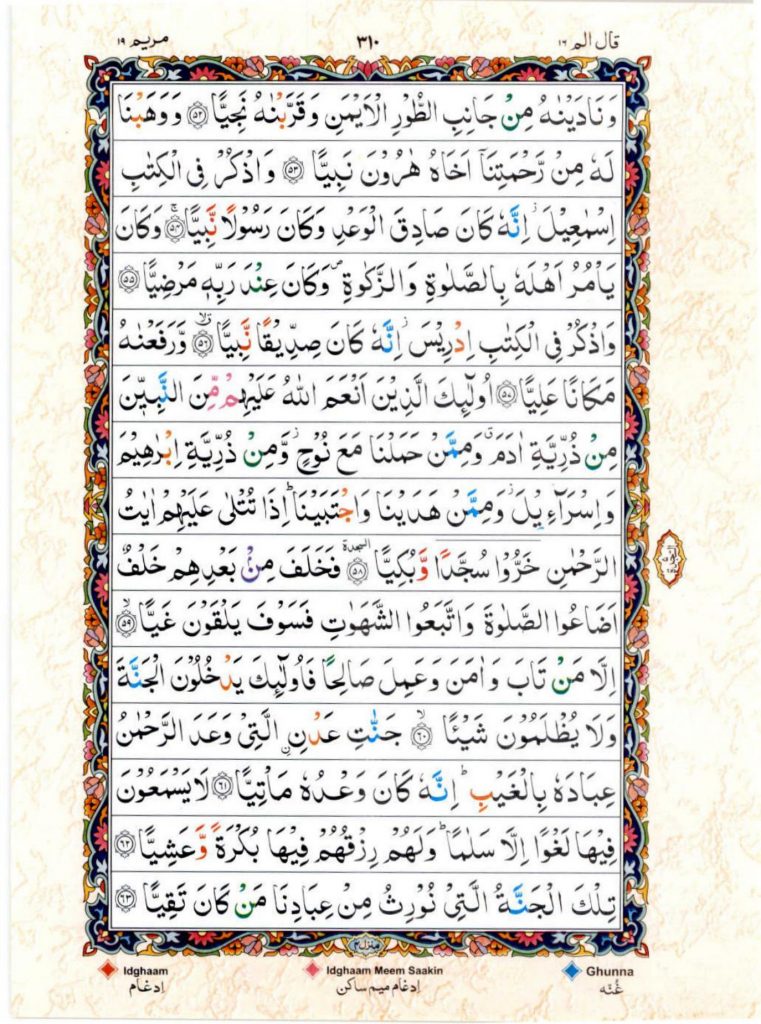 قال الم ١٦
٣١٠
مريم ١٩
وَنَادَيْنٰهُ مِنْ جَانِبِ الطُّوْرِ الْاَيْمَنِ وَقَرَّبْنٰهُ نَجِيًّا ۝٥٢ وَوَهَبْنَا
لَهٗ مِنْ رَّحْمَتِنَاۤ اَخَاهُ هٰرُوْنَ نَبِيًّا ۝٥٣ وَاذْكُرْ فِى الْكِتٰبِ
اِسْمٰعِيْلَ ز اِنَّهٗ كَانَ صَادِقَ الْوَعْدِ وَكَانَ رَسُوْلًا نَّبِيًّا ۝٥٤ۚ وَكَانَ
يَاْمُرُ اَهْلَهٗ بِالصَّلٰوةِ وَالزَّكٰوةِ ص وَكَانَ عِنْدَ رَبِّهٖ مَرْضِيًّا ۝٥٥
وَاذْكُرْ فِى الْكِتٰبِ اِدْرِيْسَ ز اِنَّهٗ كَانَ صِدِّيْقًا نَّبِيًّا ۝٥٦ۙ وَّرَفَعْنٰهُ
مَكَانًا عَلِيًّا ۝٥٧ اُولٰٓئِكَ الَّذِيْنَ اَنْعَمَ اللّٰهُ عَلَيْهِمْ مِّنَ النَّبِيّٖنَ
مِنْ ذُرِّيَّةِ اٰدَمَ ق وَمِمَّنْ حَمَلْنَا مَعَ نُوْحٍ ز وَّمِنْ ذُرِّيَّةِ اِبْرٰهِيْمَ
وَاِسْرَآءِيْلَ ز وَمِمَّنْ هَدَيْنَا وَاجْتَبَيْنَا ؕ اِذَا تُتْلٰى عَلَيْهِمْ اٰيٰتُ
الرَّحْمٰنِ خَرُّوْا سُجَّدًا وَّبُكِيًّا ۝٥٨ السجدة فَخَلَفَ مِنْۢ بَعْدِهِمْ خَلْفٌ
اَضَاعُوا الصَّلٰوةَ وَاتَّبَعُوا الشَّهَوٰتِ فَسَوْفَ يَلْقَوْنَ غَيًّا ۝٥٩ۙ
اِلَّا مَنْ تَابَ وَاٰمَنَ وَعَمِلَ صَالِحًا فَاُولٰٓئِكَ يَدْخُلُوْنَ الْجَنَّةَ
وَلَا يُظْلَمُوْنَ شَيْـًٔا ۝٦٠ۙ جَنّٰتِ عَدْنِ ِۨالَّتِىْ وَعَدَ الرَّحْمٰنُ
عِبَادَهٗ بِالْغَيْبِ ؕ اِنَّهٗ كَانَ وَعْدُهٗ مَاْتِيًّا ۝٦١ لَا يَسْمَعُوْنَ
فِيْهَا لَغْوًا اِلَّا سَلٰمًا ؕ وَلَهُمْ رِزْقُهُمْ فِيْهَا بُكْرَةً وَّعَشِيًّا ۝٦٢
تِلْكَ الْجَنَّةُ الَّتِىْ نُوْرِثُ مِنْ عِبَادِنَا مَنْ كَانَ تَقِيًّا ۝٦٣
منزل ٤
Idghaam
Idghaam Meem Saakin
Ghunna
اِدغَام
اِدغَام میم ساکن
غُنَّه